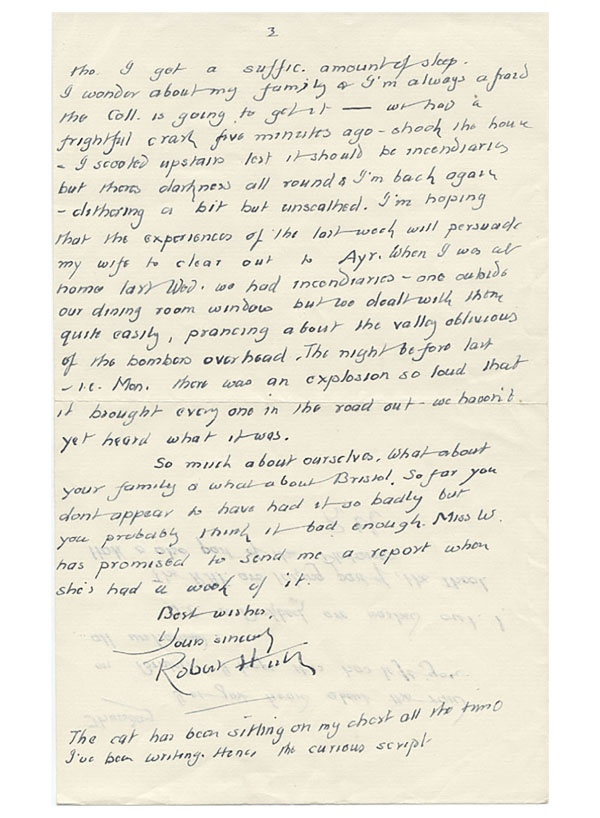 3
tho. I got a suffic. amount of sleep.
I wonder about my family & I'm always afraid
the Coll. is going to get it — we had a
frightful crash five minutes ago - shook the house
- I scooted upstairs lest it should be incendiaries
but theres darkness all round & I'm back again
- dithering a bit but unscathed. I'm hoping
that the experiences of the last week will persuade
my wife to clear out to Ayr. When I was at
home last Wed. we had incendiaries - one outside
our dining room window but we dealt with them
quite easily, prancing about the valley oblivious
of the bombers overhead. The night before last
- i.e. Mon. there was an explosion so loud that
it brought every one in the road out - we haven't
yet heard what it was.
So much about ourselves. What about
your family & what about Bristol. So far you
dont appear to have had it so badly but
you probably think it bad enough. Miss W.
has promised to send me a report when
she's had a week of it.
Best wishes.
Yours sincerely
Robert
The cat has been sitting on my chest all the time
I've been writing. Hence the curious script